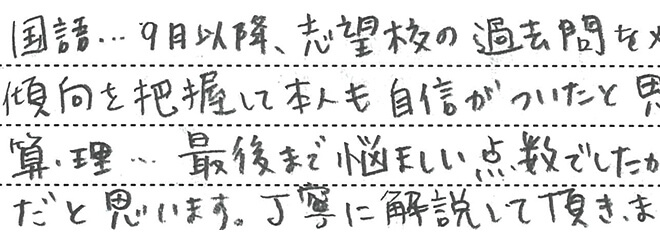 国語…9月以降、志望校の過去問を
傾向を把握して本人も自信がついたと思
算・理…最後まで悩ましい点数でしたが
だと思います。丁寧に解説して頂きま